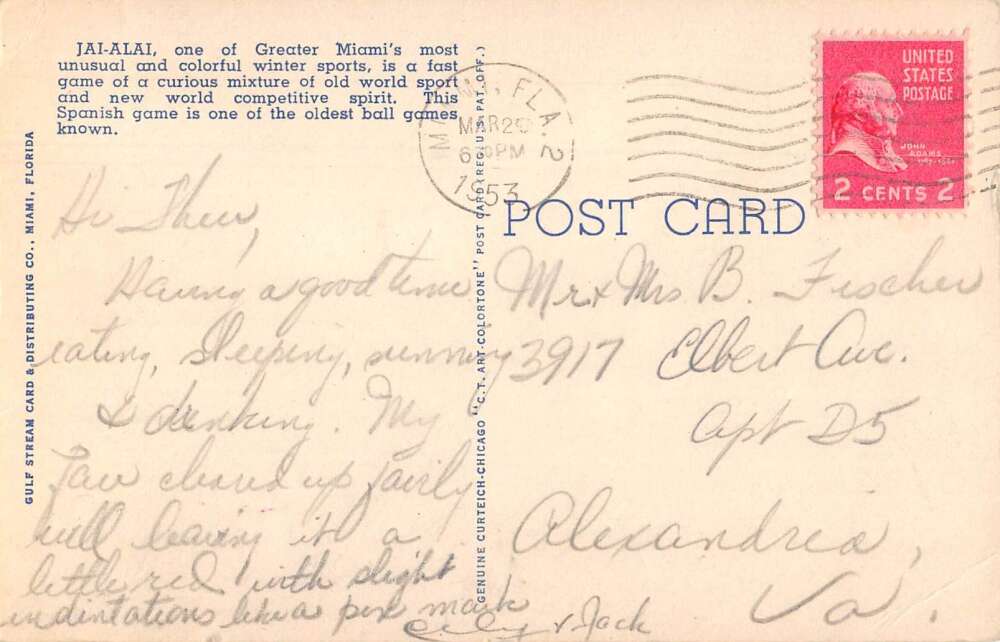 JAI-ALAI, one of Greater Miami's most
unusual and colorful winter sports, is a fast
game of a curious mixture of old world sport
and new world competitive spirit. This
Spanish game is one of the oldest ball games
known.
GULF STREAM CARD & DISTRIBUTING CO., MIAMI, FLORIDA
Hi
Having a good time
eating, sleeping, sunning
& drinking. My
Jaw cleared up fairly
well leaving it a
little red with slight
indentations like a pox mark
& Jack
GENUINE CURTEICH-CHICAGO "C.T. ART-COLORTONE" POST CARD (REG. U.S. PAT. OFF.)
MIAMI, FLA. 2
MAR
PM
1953
UNITED
STATES
POSTAGE
JOHN
ADAMS
2 CENTS 2
POST CARD
Mr & Mrs B. Fischer
3917 Elbert Ave.
Apt D5
Alexandria,
Va.